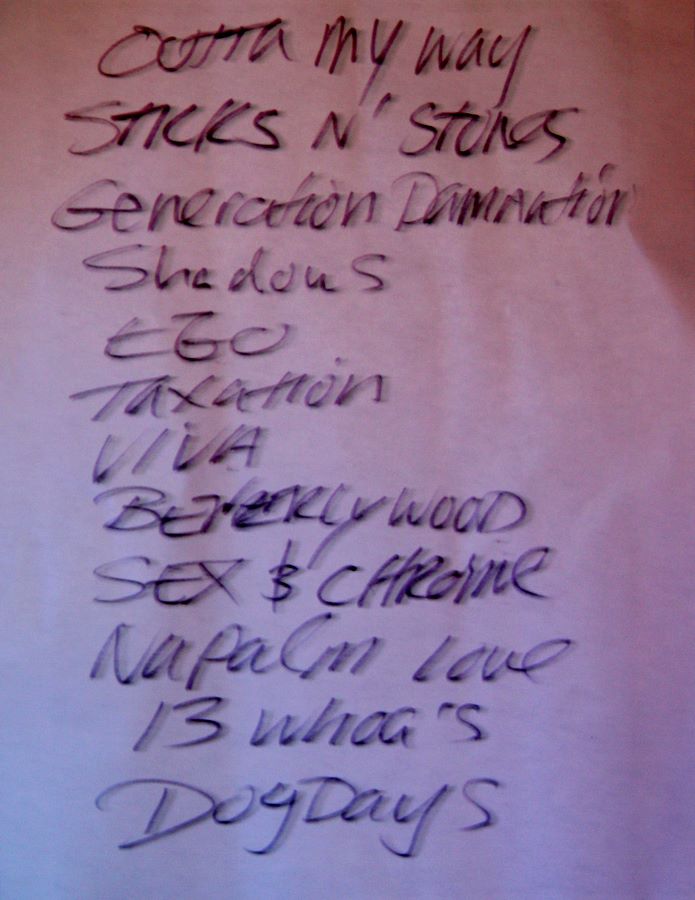 Outta my way
STICKS N' STONES
Generation Damnation
Shadows
EGO
Taxation
VIVA
BEVERLYWOOD
SEX & CHROME
Napalm Love
13 whoa's
DogDays